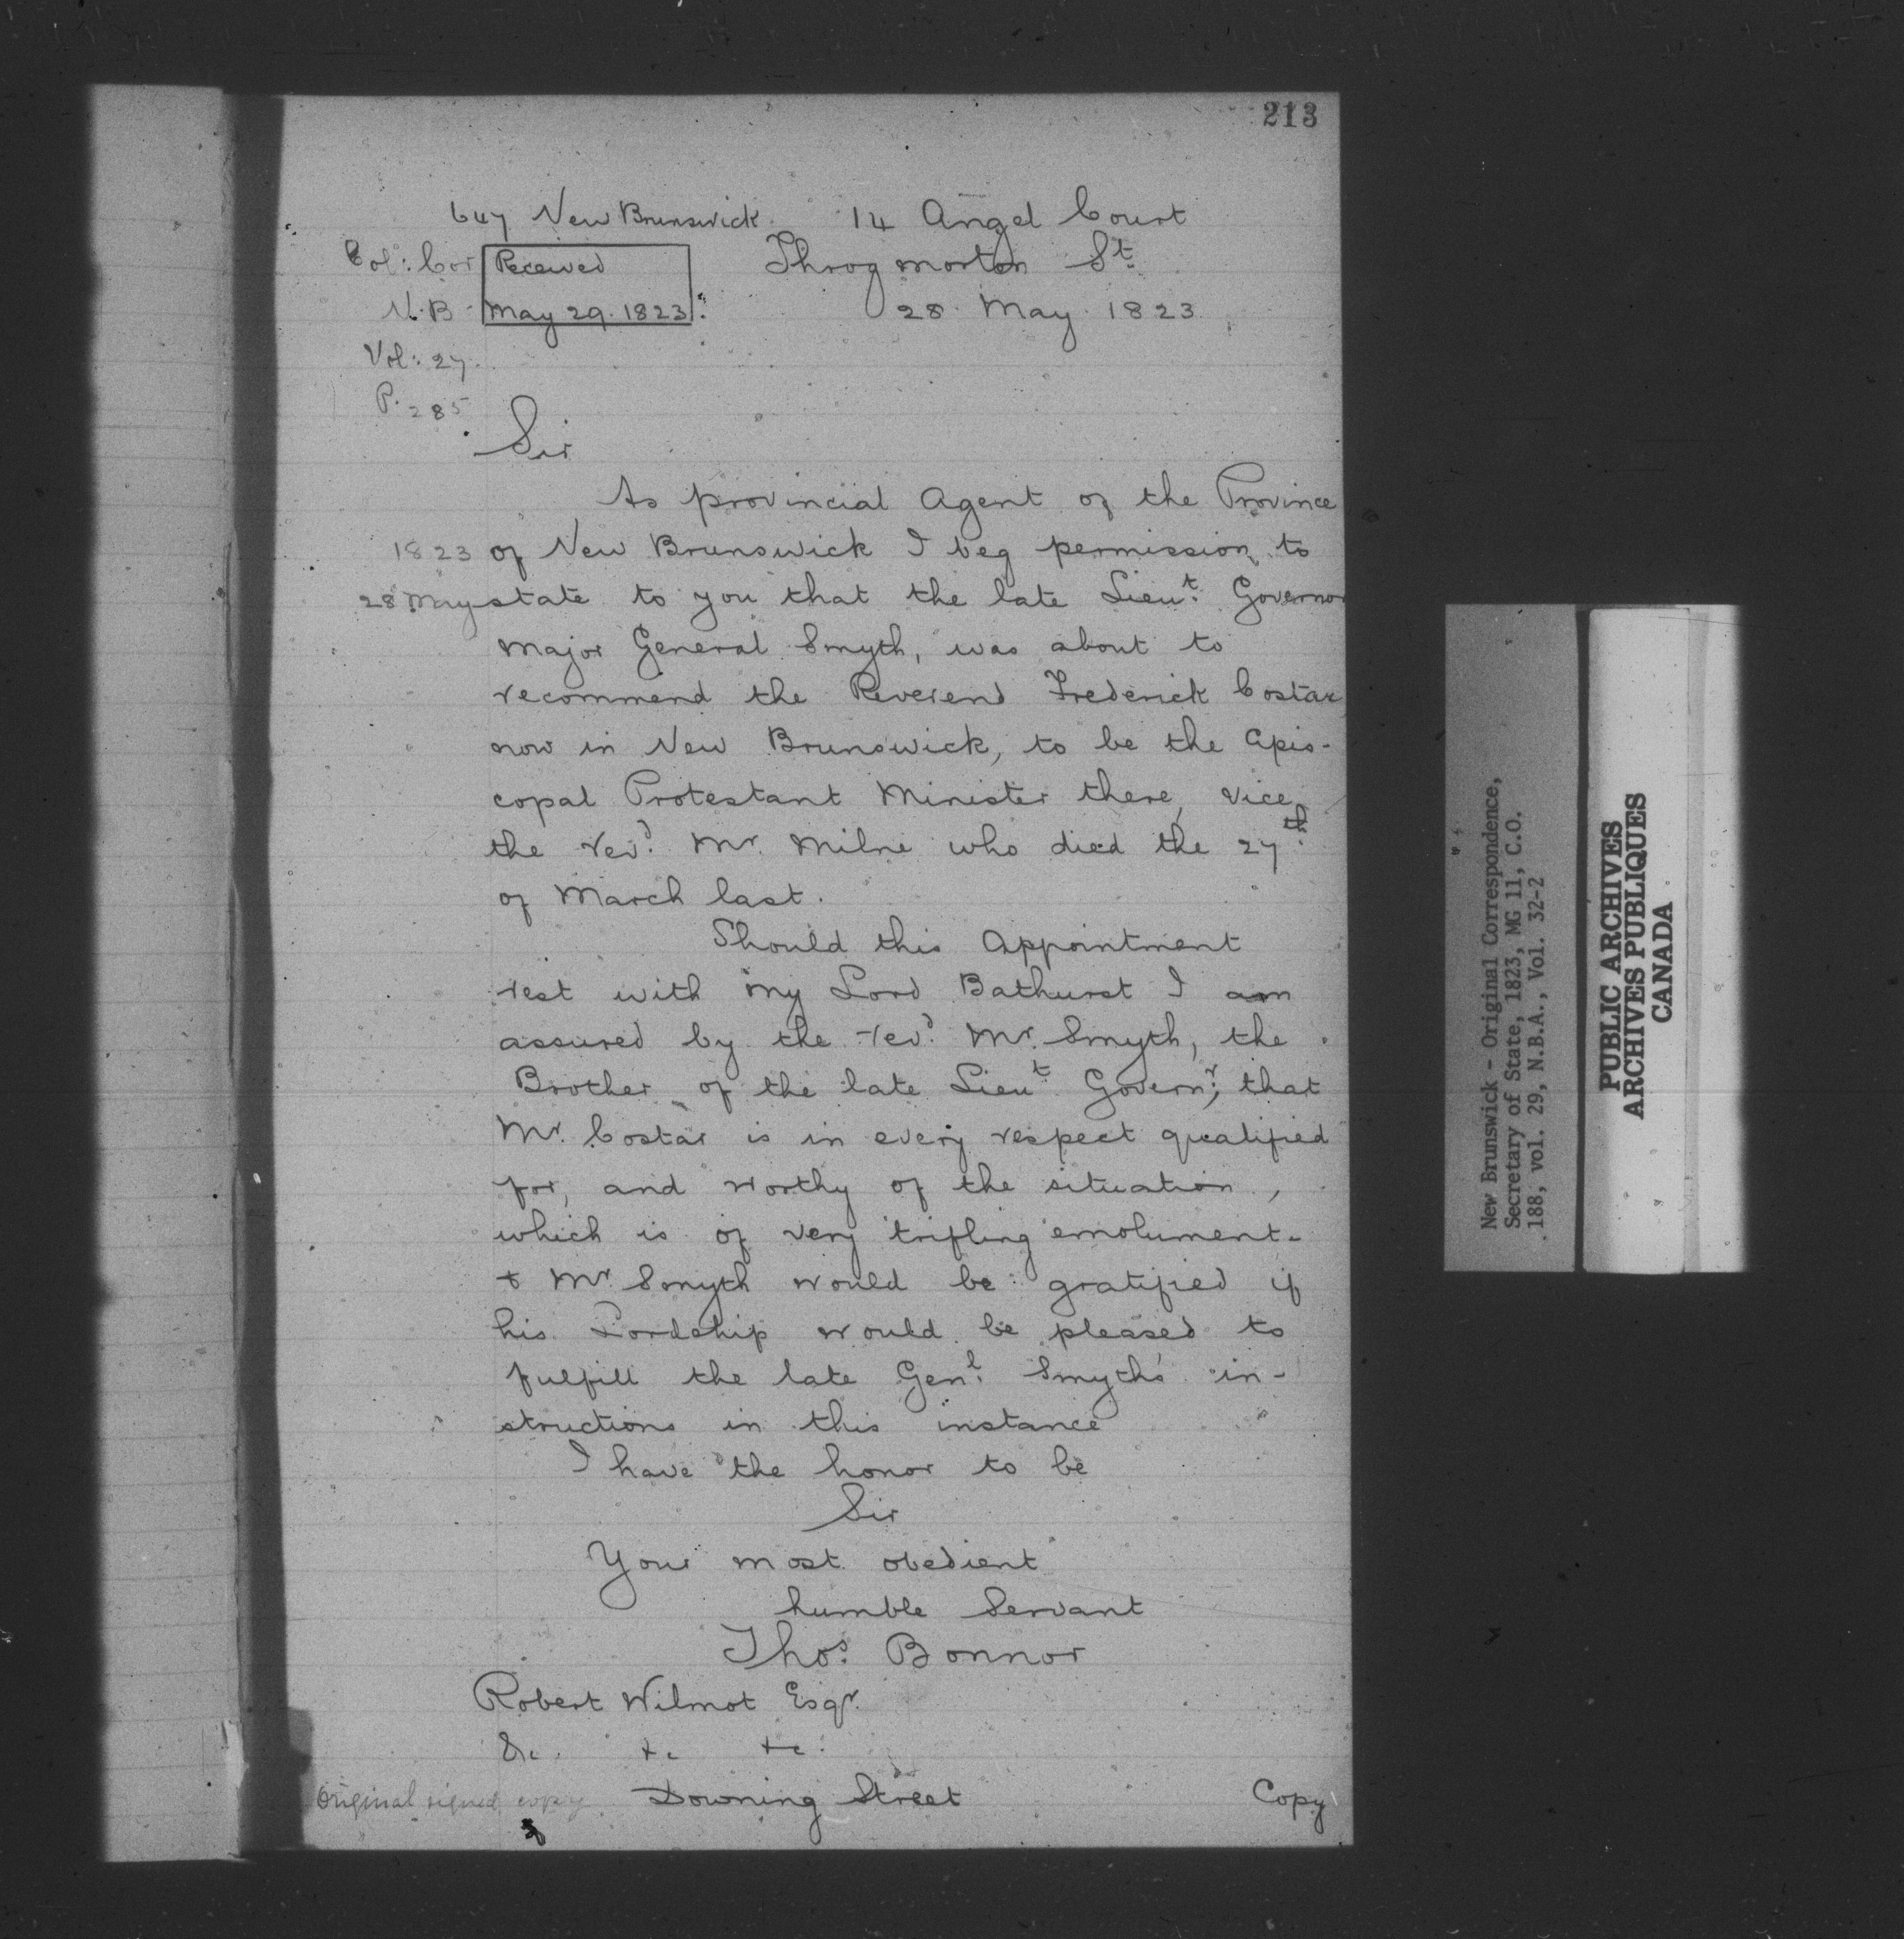 213
647 New Brunswick. 14 Angel Court
Col: Cor Received Throgmorton St
N.B. May 29. 1823 28 May 1823
Vol: 27.
P. 285
Sir
As provincial Agent of the Province
1823 of New Brunswick I beg permission to
28 May state to you that the late Lieut. Governor
Major General Smyth, was about to
recommend the Reverend Frederick Costar
now in New Brunswick, to be the Epis-
copal Protestant Minister there, vice
the Revd. Mr. Milne who died the 27th.
of March last.
Should this Appointment
rest with my Lord Bathurst I am
assured by the revd. Mr. Smyth, the
Brother of the late Lieut Governr, that
Mr. Costar is in every respect qualified
for, and worthy of the situation,
which is of very trifling emolument-
& Mr. Smyth would be gratified if
his Lordship would be pleased to
fulfill the late Genl. Smyth's in-
structions in this instance
I have the honor to be
Sir
Your most obedient
humble Servant
Thos. Bonnor
Robert Wilmot Esqr.
&c. &c &c.
Original signed copy Downing Street Copy
New Brunswick - Original Correspondence,
Secretary of State, 1823, MG 11, C.O.
188, vol. 29, N.B.A., Vol. 32-2
PUBLIC ARCHIVES
ARCHIVES PUBLIQUES
CANADA